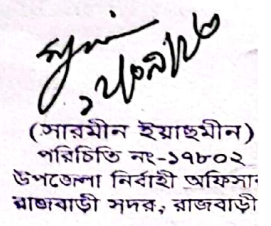 (সারমীন ইয়াছমীন)
পরিচিতি নং-১৭৮০২
উপজেলা নির্বাহী অফিসার
রাজবাড়ী সদর, রাজবাড়ী